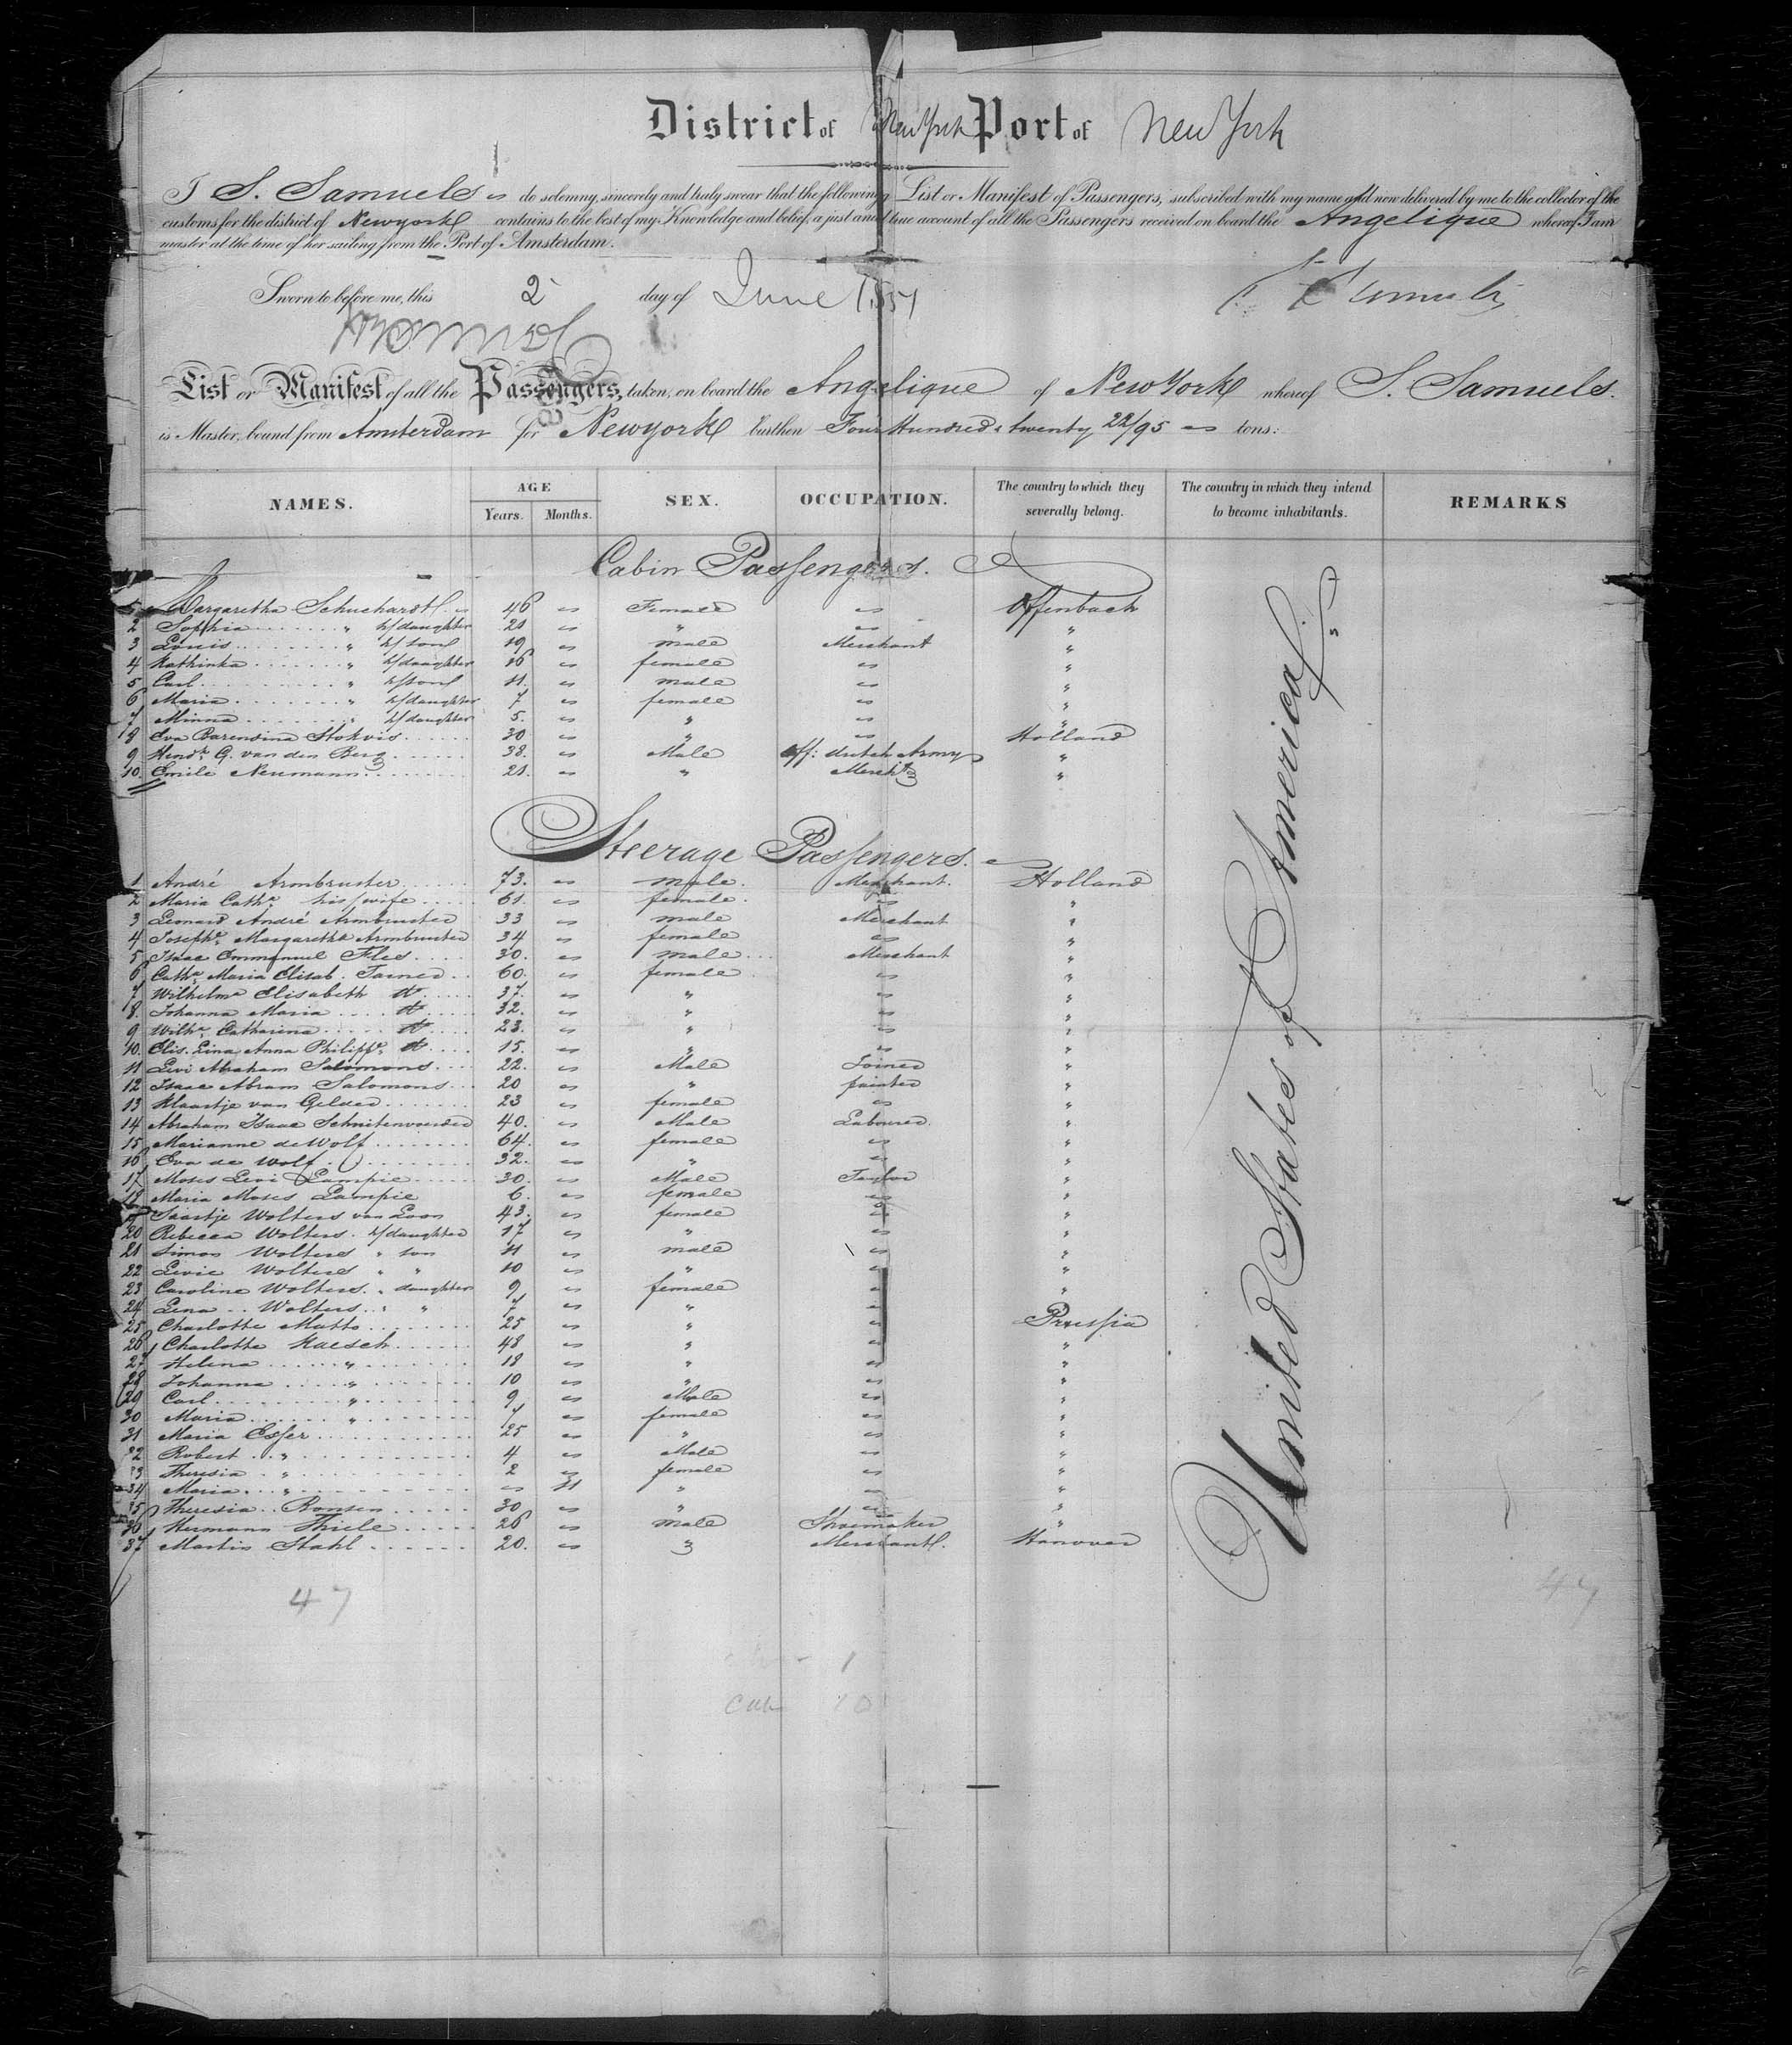 District of New York Port of New York
I S. Samuels do solemny, sincerely and truly swear that the following List or Manifest of Passengers, subscribed with my name and now delivered by me to the collector of the
customs for the district of Newyork contains to the best of my Knowledge and belief, a just and true account of all the Passengers received on board the Angelique whereof I am
master at the time of her sailing from the Port of Amsterdam.
Sworn to before me, this 2 day of June 1851 S Samuels
List or Manifest of all the Passengers, taken, on board the Angelique of New York whereof S. Samuels.
is Master, bound from Amsterdam for Newyork burthen Four Hundred & twenty 22/95 tons:
NAMES. AGE Years. Months. SEX. OCCUPATION. The country to which they severally belong. The country in which they intend to become inhabitants. REMARKS
Cabin Passengers.
1 Margaretha Schuchardt 46 Female Offenbach
2 Sophia " h/daughter 21 " "
3 Louis " h/son 19 male Merchant "
4 Kathinka " h/daughter 16 female "
5 Carl " h/son 11. male "
6 Maria " h/daughter 7 female "
7 Minna " h/daughter 5. " "
8 Eva Barendina Stokvis 30 " Holland
9 Hendk. G. van den Berg 38. Male off: dutch Army "
10. Emile Neumann 21. " Mercht. "
Steerage Passengers.
1 André Armbruster 73. male. Merchant. Holland
2 Maria Cathe. his wife 61. female. "
3 Leonard André Armbruster 33 male Merchant "
4 Josephe. Margaretha Armbruster 34 female "
5 Isaac Emmanuel Fles 30. male Merchant "
6 Cathe. Maria Elisab. 60. female "
7 Wilhelma Elisabeth do 37. " "
8. Johanna Maria do 32. " "
9 Wilha. Catharina do 23. " "
10. Elis. Lina Anna Philippe. do 15. " "
11 Levi Abraham Salomons 22. Male Joiner "
12 Isaac Abram Salomons 20 " painter "
13 Klaartje van Gelder 23 female "
14 Abraham Isaac 40. Male Labourer "
15 Marianne de Wolf 64. female "
16 Eva de Wolf 32. " "
17 Moses Levi Lampie 30. Male Taylor "
18 Maria Moses Lampie 6. female "
19 Saartje Wolters van Loon 43. female "
20 Rebecca Wolters. h/daughter 17 " "
21 Simon Wolters " son 11 male "
22 Levie Wolters " " 10 " "
23 Caroline Wolters. " daughter 9 female "
24 Lena Wolters. " " 7 " "
25 Charlotte Mutto 25 " Prussia
26 Charlotte Kaesch 48 " "
27 Helena " 18 " "
28 Johanna " 10 " "
29 Carl " 9 Male "
30 Maria " 7 female "
31 Maria Esser 25 " "
32 Robert " 4 Male "
33 Theresia " 2 female "
34 Maria " 11 " "
35 Theresia Ronsen 30 " "
36 Hermann Thiele 26 male Shoemaker "
37 Martin Stahl 20. " Merchant. Hanover
United States of America.
47
47
1
Cab 10